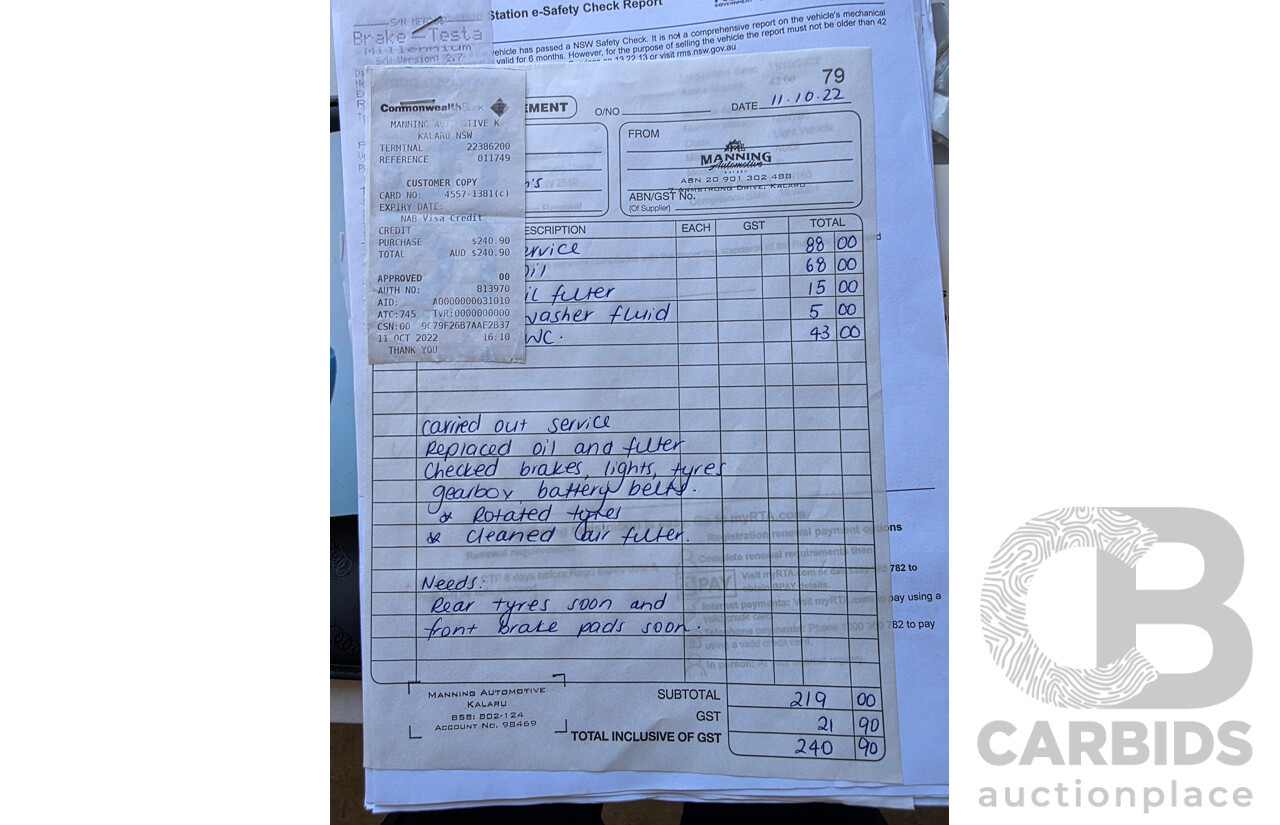 Station e-Safety Check Report
Brake-Testa
Millennium
S/W Version: 2.7
vehicle has passed a NSW Safety Check. It is not a comprehensive report on the vehicle's mechanical
valid for 6 months. However, for the purpose of selling the vehicle the report must not be older than 42
13 22 13 or visit rms.nsw.gov.au
79
EMENT
O/NO
DATE 11.10.22
CommonwealthBank
MANNING AUTOMOTIVE K
KALARU NSW
TERMINAL 22386200
REFERENCE 011749
CUSTOMER COPY
CARD NO: 4557-1381(c)
EXPIRY DATE:
NAB Visa Credit
CREDIT
PURCHASE $240.90
TOTAL AUD $240.90
APPROVED 00
AUTH NO: 813970
AID: A0000000031010
ATC:745 TVR:0000000000
CSN:00 9C79F26B7AAE2B37
11 OCT 2022 16:10
THANK YOU
FROM
MANNING
Automotive
KALARU
ABN 20 901 302 488
7 ARMSTRONG DRIVE, KALARU
ABN/GST No.
(Of Supplier)
ESCRIPTION EACH GST TOTAL
ervice 88 00
oil 68 00
il filter 15 00
washer fluid 5 00
WC. 43 00
carried out service
Replaced oil and filter
Checked brakes, lights, tyres
gearbox, battery belts.
& Rotated tyres
& cleaned air filter.
Needs:
Rear tyres soon and
front brake pads soon.
ons
782 to
pay using a
782 to pay
MANNING AUTOMOTIVE
KALARU
BSB: 802-124
ACCOUNT NO. 98469
SUBTOTAL 219 00
GST 21 90
TOTAL INCLUSIVE OF GST 240 90
CARBIDS
auctionplace